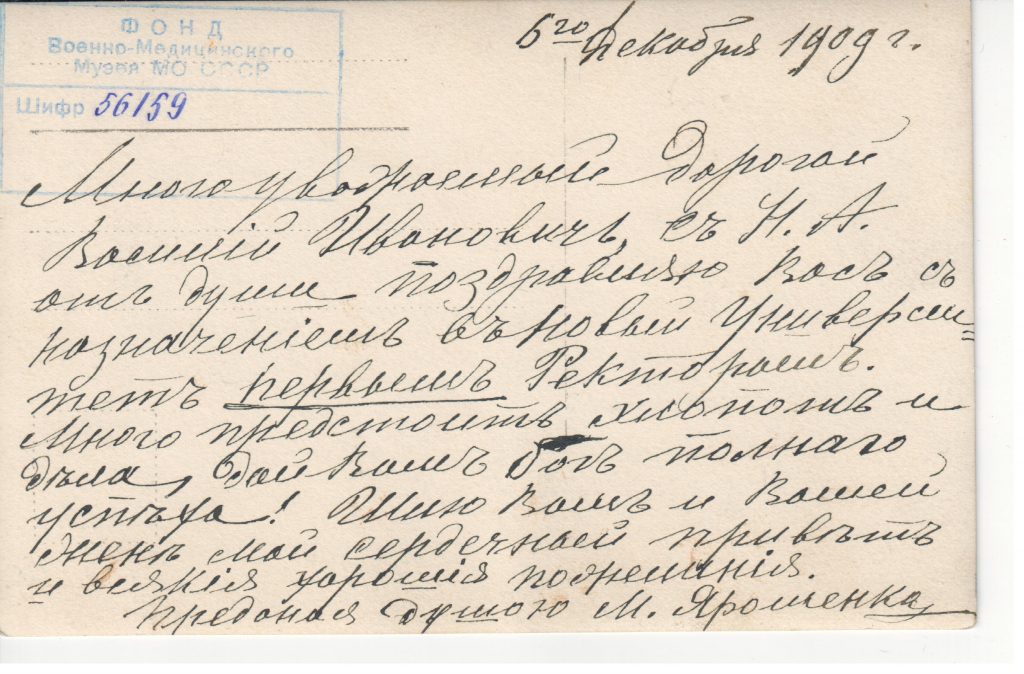 ФОНД
Военно-Медицинского
Музея МО СССР
Шифр 56159
5го Декабря 1909 г.
Многоуважаемый Дорогой
Василій Ивановичъ, съ Н. А.
отъ души поздравляю Васъ съ
назначеніемъ въ новый Универси-
тетъ первымъ Ректоромъ.
Много предстоитъ хлопотъ и
дѣла, дай Вамъ Богъ полнаго
успѣха! Шлю Вамъ и Вашей
женѣ мой сердечный привѣтъ
и всякія хорошія пожеланія.
Преданая душою М. Ярошенко